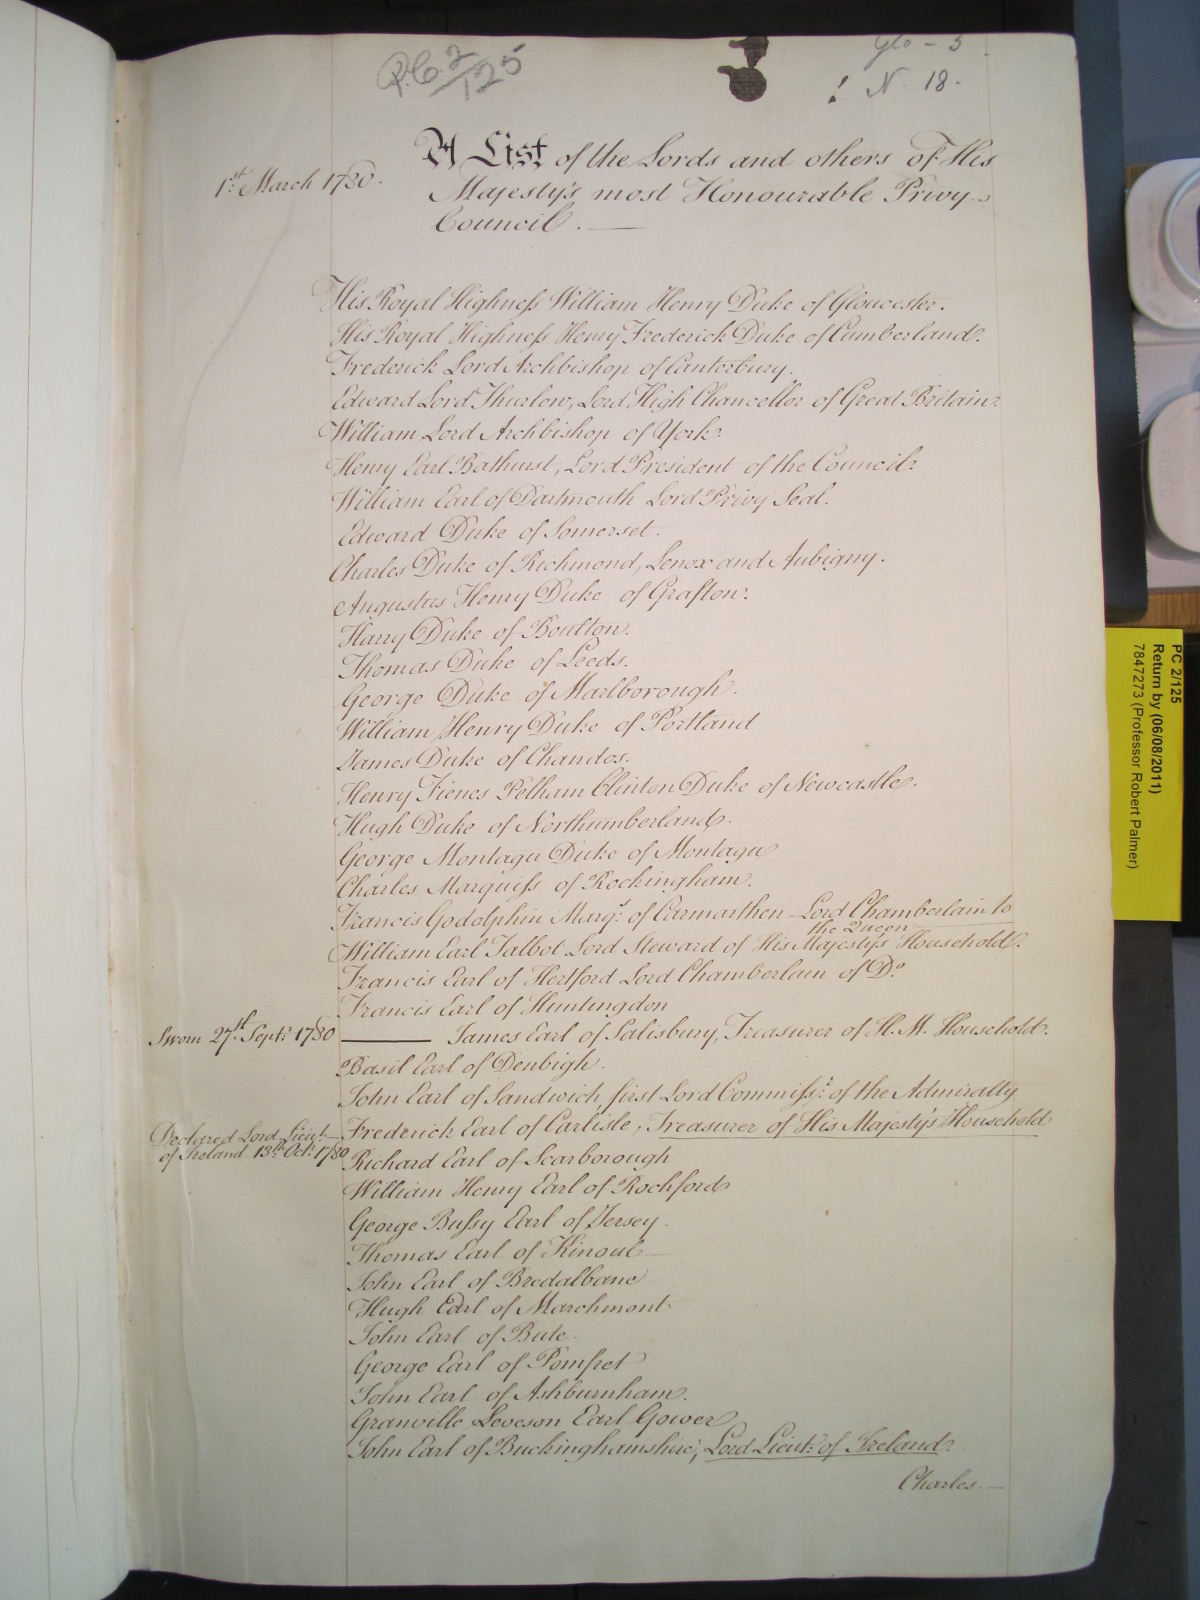 P.C. 2/125
Geo - 3
N. 18.
1st. March 1780.
A List of the Lords and others of His
Majesty's most Honourable Privy
Council.
His Royal Highness William Henry Duke of Gloucester.
His Royal Highness Henry Frederick Duke of Cumberland.
Frederick Lord Archbishop of Canterbury.
Edward Lord Thurlow, Lord High Chancellor of Great Britain.
William Lord Archbishop of York.
Henry Earl Bathurst, Lord President of the Council.
William Earl of Dartmouth Lord Privy Seal.
Edward Duke of Somerset.
Charles Duke of Richmond, Lenox and Aubigny.
Augustus Henry Duke of Grafton.
Harry Duke of Boulton.
Thomas Duke of Leeds.
George Duke of Marlborough.
William Henry Duke of Portland
James Duke of Chandos.
Henry Fienes Pelham Clinton Duke of Newcastle.
Hugh Duke of Northumberland.
George Montagu Duke of Montagu
Charles Marquiss of Rockingham.
Francis Godolphin Marqs. of Carmarthen - Lord Chamberlain to
the Queen
William Earl Talbot Lord Steward of His Majesty's Household.
Francis Earl of Hertford Lord Chamberlain of Do.
Francis Earl of Huntingdon
Sworn 27th. Sept. 1780 — James Earl of Salisbury, Treasurer of H. M. Household.
Basil Earl of Denbigh.
John Earl of Sandwich first Lord Commissr. of the Admiralty
Declared Lord Lieut.
of Ireland 13th. Oct. 1780
Frederick Earl of Carlisle, Treasurer of His Majesty's Household
Richard Earl of Scarborough
William Henry Earl of Rochford
George Bussy Earl of Jersey.
Thomas Earl of Kinoul
John Earl of Bredalbane
Hugh Earl of Marchmont
John Earl of Bute.
George Earl of Pomfret
John Earl of Ashburnham.
Granville Leveson Earl Gower
John Earl of Buckinghamshire, Lord Lieut. of Ireland.
Charles.—
PC 2/125
Return by (06/08/2011)
7847273 (Professor Robert Palmer)